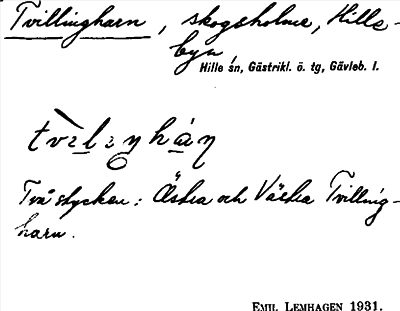 Tvillingharn, skogsholme, Hille-
byn
Hille sn, Gästrikl. ö. tg, Gävleb. l.
Två stycken: Östra och Västra Tvilling-
harn.
EMIL LEMHAGEN 1931.